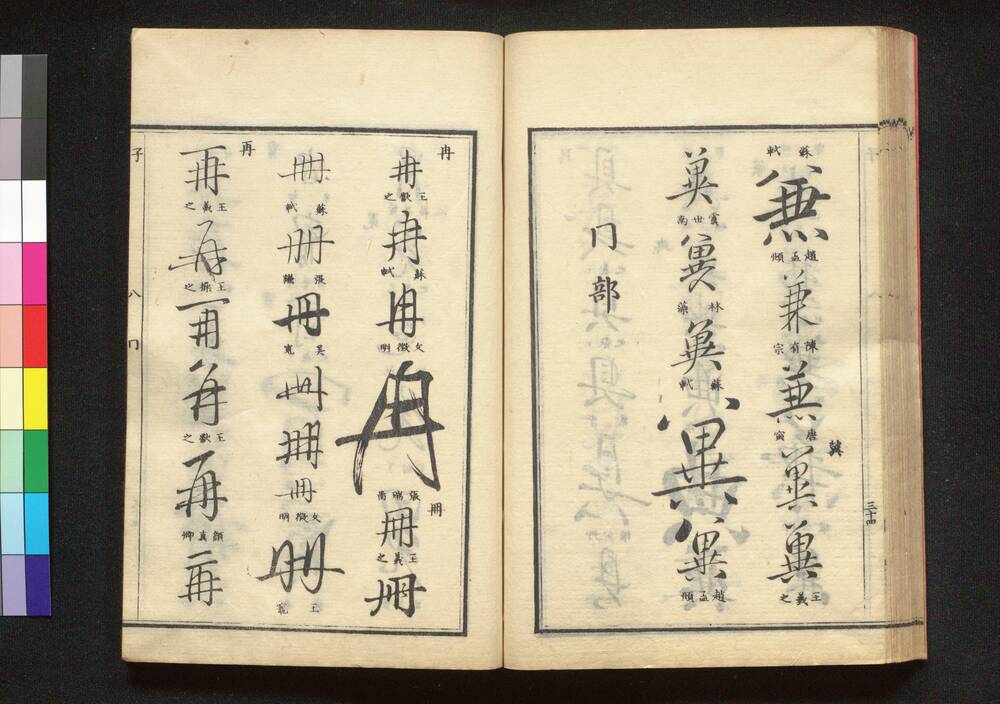 三十四
蘇軾
兼
趙孟頫
兼
陳有宗
兼
唐寅
冀
冀
冀
王羲之
冀
虞世南
冀
林藻
冀
蘇軾
冀
冀
趙孟頫
冂部
冉
冉
王獻之
冉
蘇軾
冉
文徴明
冉
張瑞圖
冊
冊
王羲之
冊
冊
蘇軾
冊
張
冊
吳寬
冊
冊
冊
文徴明
冊
王寵
再
再
王羲之
再
王操之
再
再
王獻之
再
顏真卿
再
子
八
冂